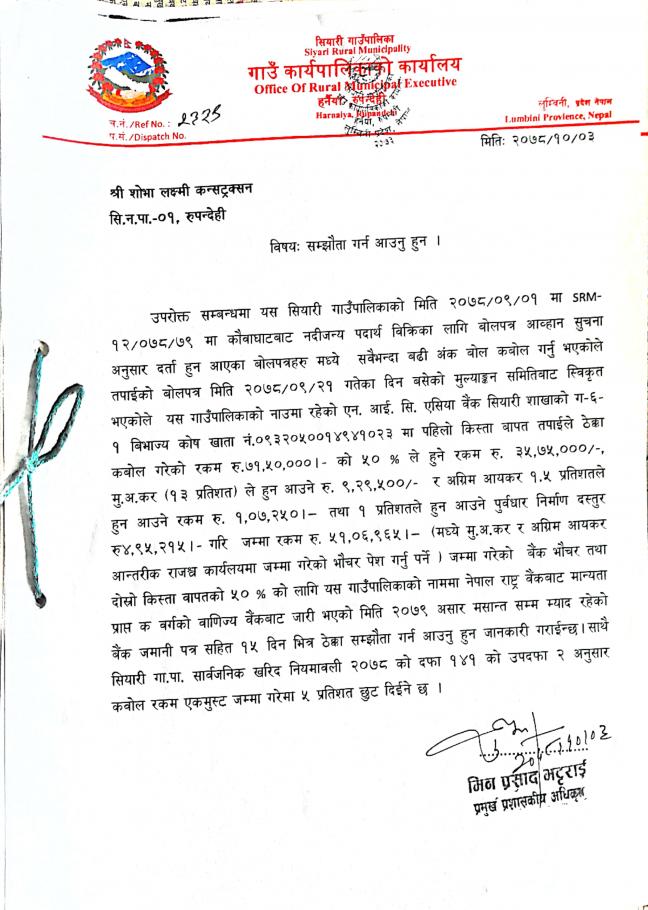 सियारी गाउँपालिका
Siyari Rural Municipality
गाउँ कार्यपालिकाको कार्यालय
Office Of Rural Municipal Executive
हर्नैया, रुपन्देही
Harnaiya, Rupandehi
लुम्बिनी, प्रदेश नेपाल
Lumbini Provience, Nepal
च.नं./Ref No. :
प.सं./Dispatch No.
२०७३
मितिः २०७८/१०/०३
श्री शोभा लक्ष्मी कन्सट्रक्सन
सि.न.पा.-०१, रुपन्देही
विषयः सम्झौता गर्न आउनु हुन ।
उपरोक्त सम्बन्धमा यस सियारी गाउँपालिकाको मिति २०७८/०९/०१ मा SRM-
१२/०७८/७९ मा कौवाघाटबाट नदीजन्य पदार्थ विक्रिका लागि बोलपत्र आव्हान सुचना
अनुसार दर्ता हुन आएका बोलपत्रहरु मध्ये सबैभन्दा बढी अंक बोल कबोल गर्नु भएकोले
तपाईको बोलपत्र मिति २०७८/०९/२१ गतेका दिन बसेको मुल्याङ्कन समितिबाट स्विकृत
भएकोले यस गाउँपालिकाको नाउमा रहेको एन. आई. सि. एसिया बैंक सियारी शाखाको ग-६-
१ बिभाज्य कोष खाता नं.०९३२०५००१४९४१०२३ मा पहिलो किस्ता बापत तपाईले ठेक्का
कबोल गरेको रकम रु.७१,५०,०००।- को ५० % ले हुने रकम रु. ३५,७५,०००/-,
मु.अ.कर (१३ प्रतिशत) ले हुन आउने रु. ९,२९,५००/- र अग्रिम आयकर १.५ प्रतिशतले
हुन आउने रकम रु. १,०७,२५०।– तथा १ प्रतिशतले हुन आउने पुर्वधार निर्माण दस्तुर
रु४,९५,२१५।- गरि जम्मा रकम रु. ५१,०६,९६५।– (मध्ये मु.अ.कर र अग्रिम आयकर
आन्तरीक राजश्व कार्यलयमा जम्मा गरेको भौचर पेश गर्नु पर्ने ) जम्मा गरेको बैंक भौचर तथा
दोस्रो किस्ता बापतको ५० % को लागि यस गाउँपालिकाको नाममा नेपाल राष्ट्र बैंकबाट मान्यता
प्राप्त क वर्गको वाणिज्य बैंकबाट जारी भएको मिति २०७९ असार मसान्त सम्म म्याद रहेको
बैंक जमानी पत्र सहित १५ दिन भित्र ठेक्का सम्झौता गर्न आउनु हुन जानकारी गराईन्छ।साथै
सियारी गा.पा. सार्वजनिक खरिद नियमावली २०७८ को दफा १४१ को उपदफा २ अनुसार
कबोल रकम एकमुस्ट जम्मा गरेमा ५ प्रतिशत छुट दिईने छ ।
मिन प्रसाद भट्टराई
प्रमुख प्रशासकीय अधिकृत